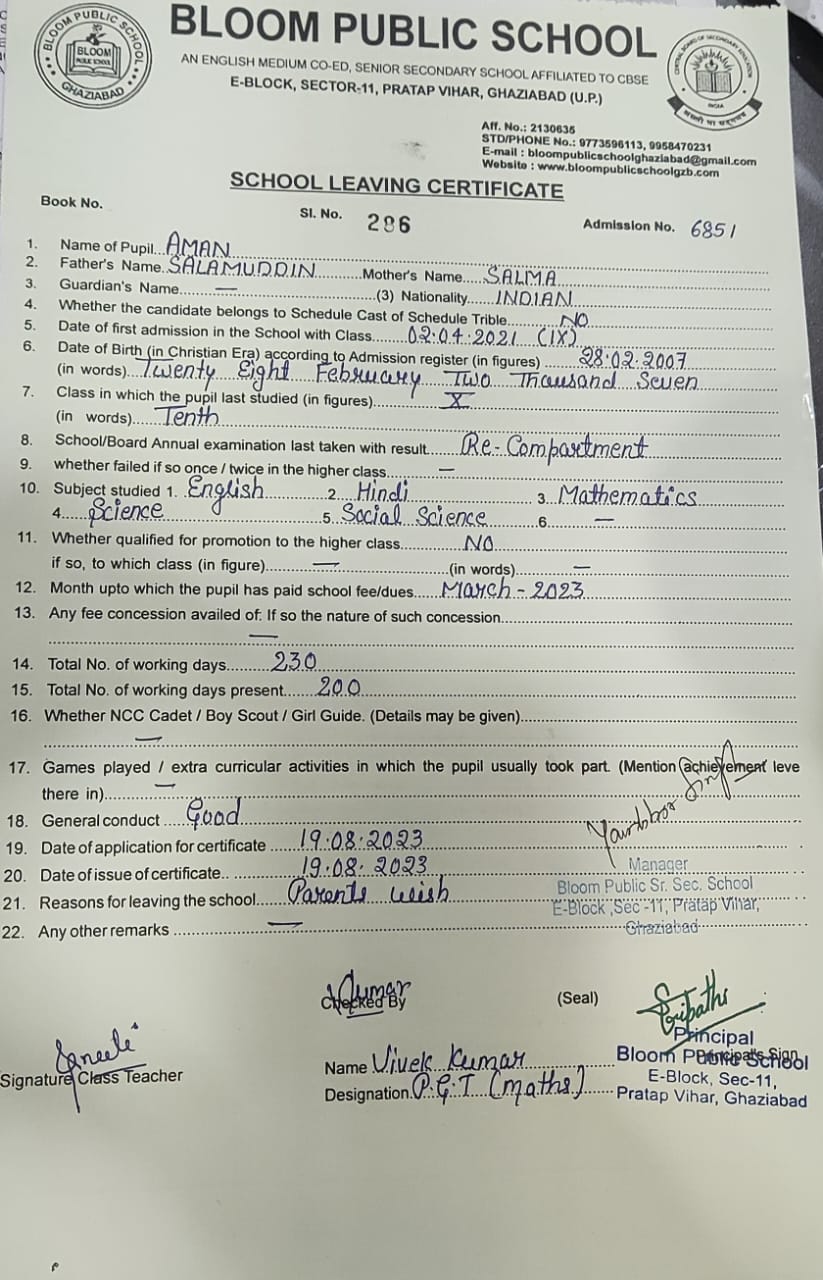 BLOOM PUBLIC SCHOOL
BLOOM PUBLIC SCHOOL
BLOOM
GHAZIABAD
AN ENGLISH MEDIUM CO-ED, SENIOR SECONDARY SCHOOL AFFILIATED TO CBSE
E-BLOCK, SECTOR-11, PRATAP VIHAR, GHAZIABAD (U.P.)
CENTRAL BOARD OF SECONDARY EDUCATION
INDIA
Aff. No.: 2130635
STD/PHONE No.: 9773596113, 9958470231
E-mail : bloompublicschoolghaziabad@gmail.com
Website : www.bloompublicschoolgzb.com
SCHOOL LEAVING CERTIFICATE
Book No. Sl. No. 286 Admission No. 6851
1. Name of Pupil...AMAN
2. Father's Name..SALAMUDDIN.....Mother's Name.....SALMA
3. Guardian's Name.....—.....(3) Nationality......INDIAN
4. Whether the candidate belongs to Schedule Cast of Schedule Trible.......NO
5. Date of first admission in the School with Class.......02.04.2021 (IX)
6. Date of Birth (in Christian Era) according to Admission register (in figures) .......28.02.2007
(in words)...Twenty Eight February Two Thausand Seven
7. Class in which the pupil last studied (in figures)......X
(in words).....Tenth
8. School/Board Annual examination last taken with result......Re-Compartment
9. whether failed if so once / twice in the higher class......—
10. Subject studied 1. English 2. Hindi 3. Mathematics
4.....Science 5. Social Science 6. —
11. Whether qualified for promotion to the higher class......NO
if so, to which class (in figure).....—.....(in words).....—
12. Month upto which the pupil has paid school fee/dues......March - 2023
13. Any fee concession availed of: If so the nature of such concession......
—
14. Total No. of working days.......230
15. Total No. of working days present......200
16. Whether NCC Cadet / Boy Scout / Girl Guide. (Details may be given)......
—
17. Games played / extra curricular activities in which the pupil usually took part. (Mention achievement leve
there in)......—
18. General conduct .....Good
19. Date of application for certificate .....19.08.2023
20. Date of issue of certificate.. .....19.08.2023
Manager
21. Reasons for leaving the school......Parents wish
Bloom Public Sr. Sec. School
E-Block ,Sec -11, Pratap Vihar,
22. Any other remarks .....—
Ghaziabad
Kumar
Checked By (Seal)
Tripathi
Principal
Signature Class Teacher
Name Vivek Kumar
Bloom Public School
Principal's Sign
E-Block, Sec-11,
Designation.P.G.T (maths)
Pratap Vihar, Ghaziabad